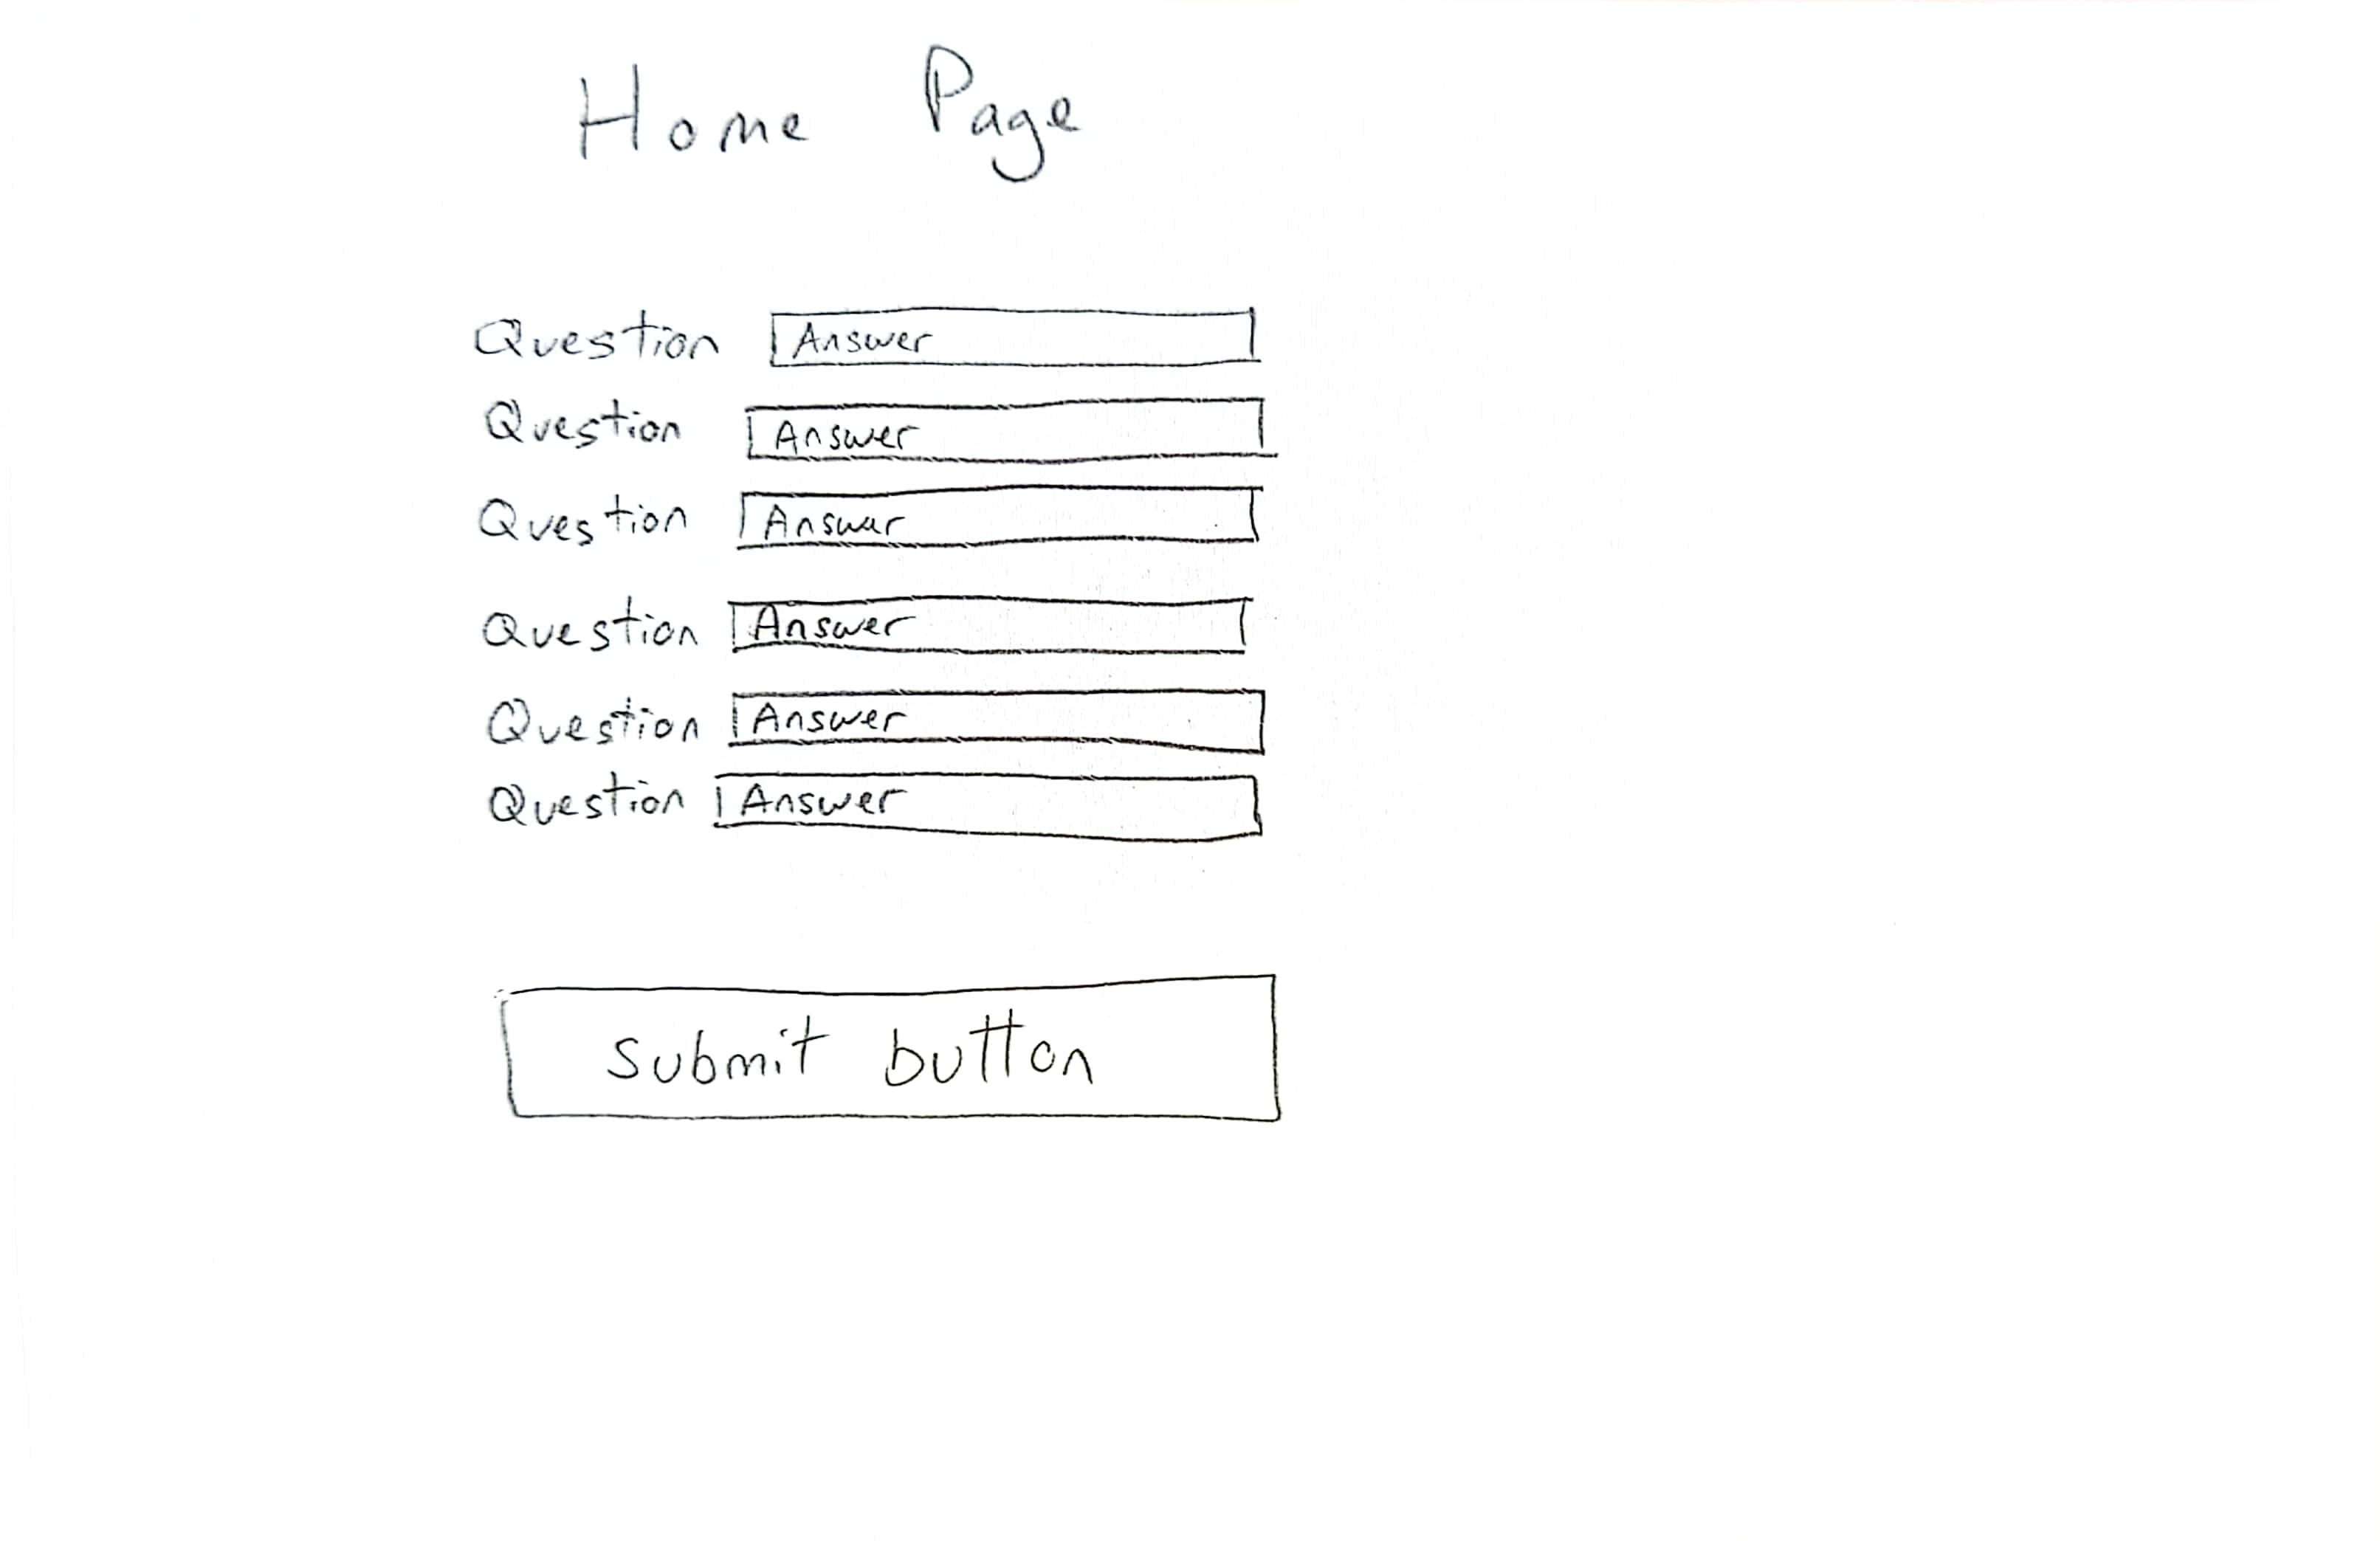 Home Page
Question Answer
Question Answer
Question Answer
Question Answer
Question Answer
Question Answer
Submit button